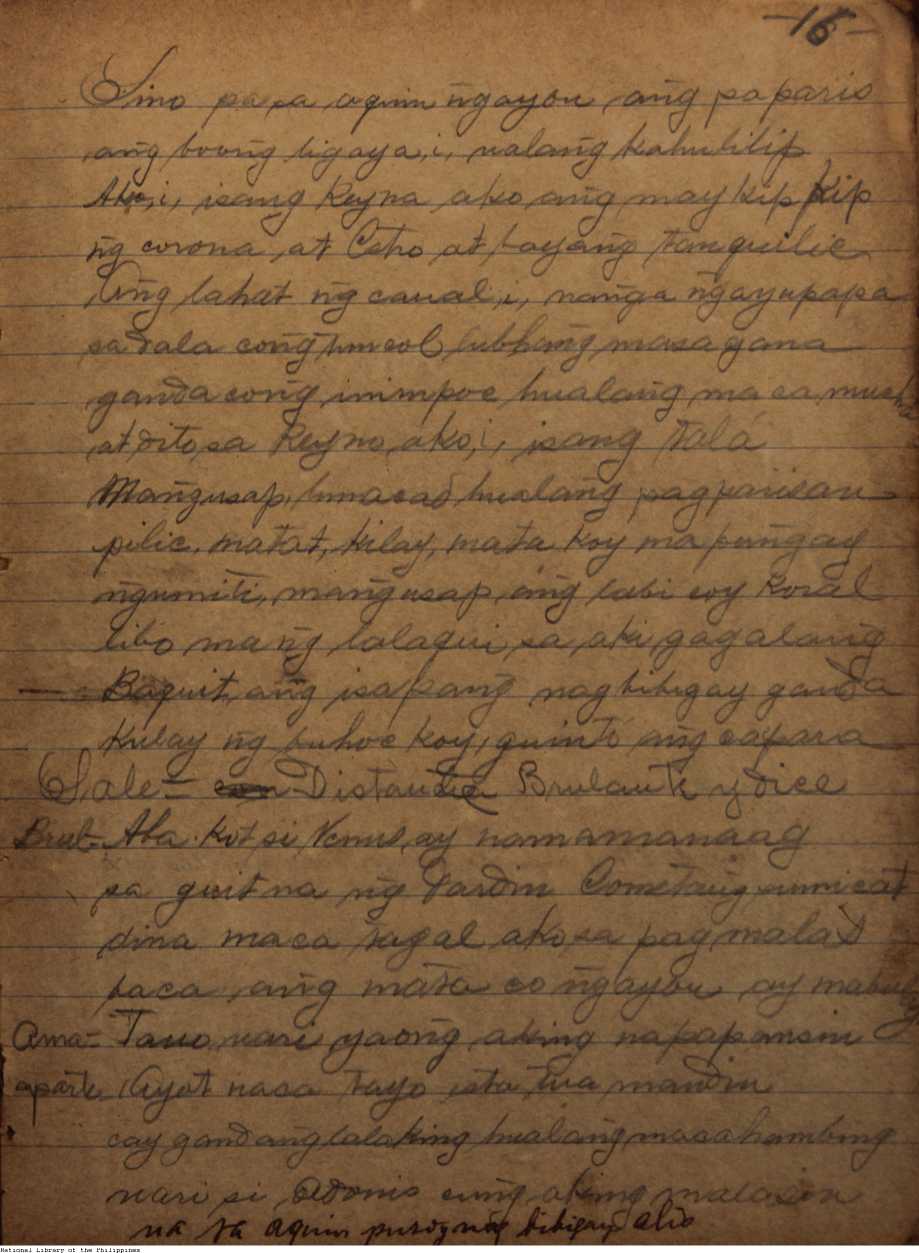 -16-
Sino pa sa aquin ngayon ang paparis
ang boong ligaya,i, ualang kahulilip
Ako,i, isang Reyna ako ang may kipkip
ng corona at Cetro at bayang tanquilic
Ang lahat ng caual,i, nanga ngayupapa
sa dala cong lubhang masagana
ganda cong inimpoc hualang maca
at dito sa Reyno ako,i, isang talá
Mangusap, lumacad hualang pagparisan
pilic, matat, kilay, mata koy mapungay
ngumiti, mangusap, ang labi coy koral
libo mang lalaqui sa aki,gagalang
Baquit ang isa pang nagbibigay ganda
Kulay ng buhoc koy, guintó ang capara
Sale = Distante Brulante y dice
Brul- Aba kit si Venus ay namamanaag
sa guitna ng Jardin Cometang sumicat
dina maca tagal ako sa pagmalas
baca ang mata co ngayon ay mabulag
Ama- Tauo uari yaong aking napapansin
aparte Ayat nasa tayo mandin
cay gandang lalaking hualang masahambing
uari si Adonis cung aking malasin
na sa aquin bibigay aliw
National Library of the Philippines